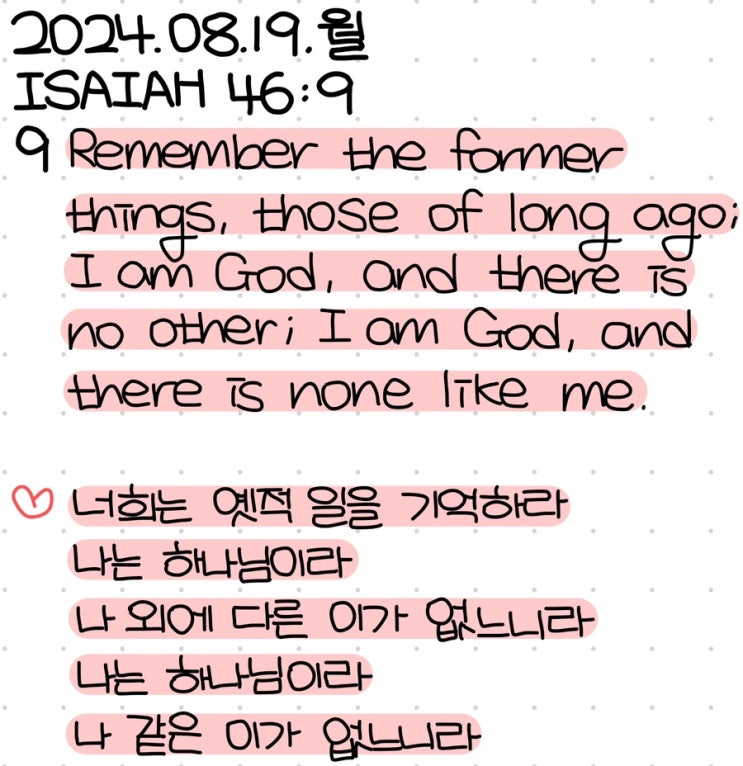 2024.08.19.월
ISAIAH 46:9
9 Remember the former
things, those of long ago;
I am God, and there is
no other; I am God, and
there is none like me.
너희는 옛적 일을 기억하라
나는 하나님이라
나 외에 다른 이가 없느니라
나는 하나님이라
나 같은 이가 없느니라